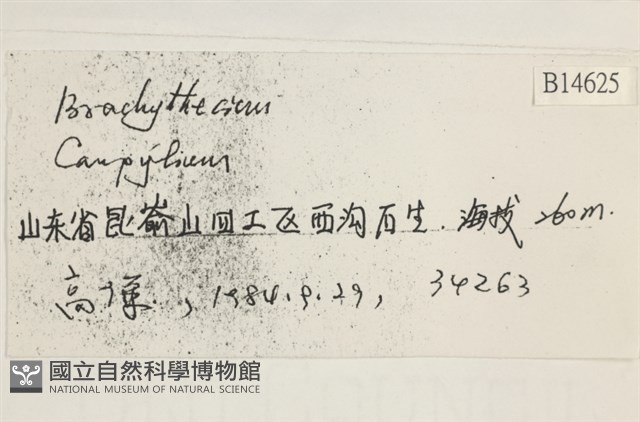 B14625
Brachythecium
Campylium
山东省昆嵛山四工区西沟石生.海拔260m.
高 , 1984.9.29, 34263
國立自然科學博物館
NATIONAL MUSEUM OF NATURAL SCIENCE